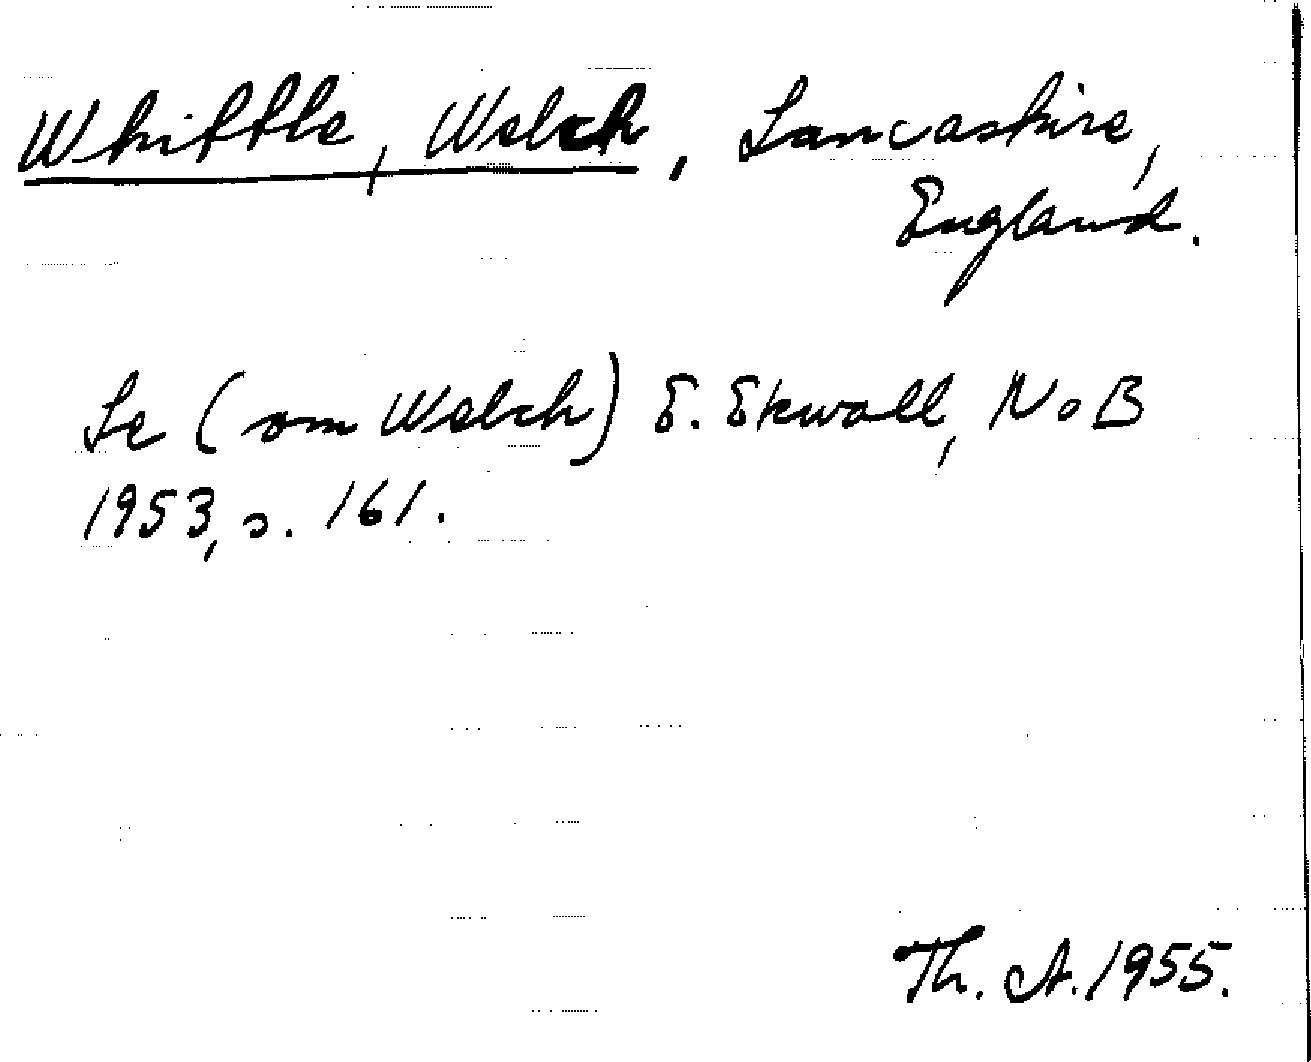 Whittle, Welch, Lancashire,
England.
Se (om Welch) E. Ekwall, NoB
1953, s. 161.
Th. A. 1955.